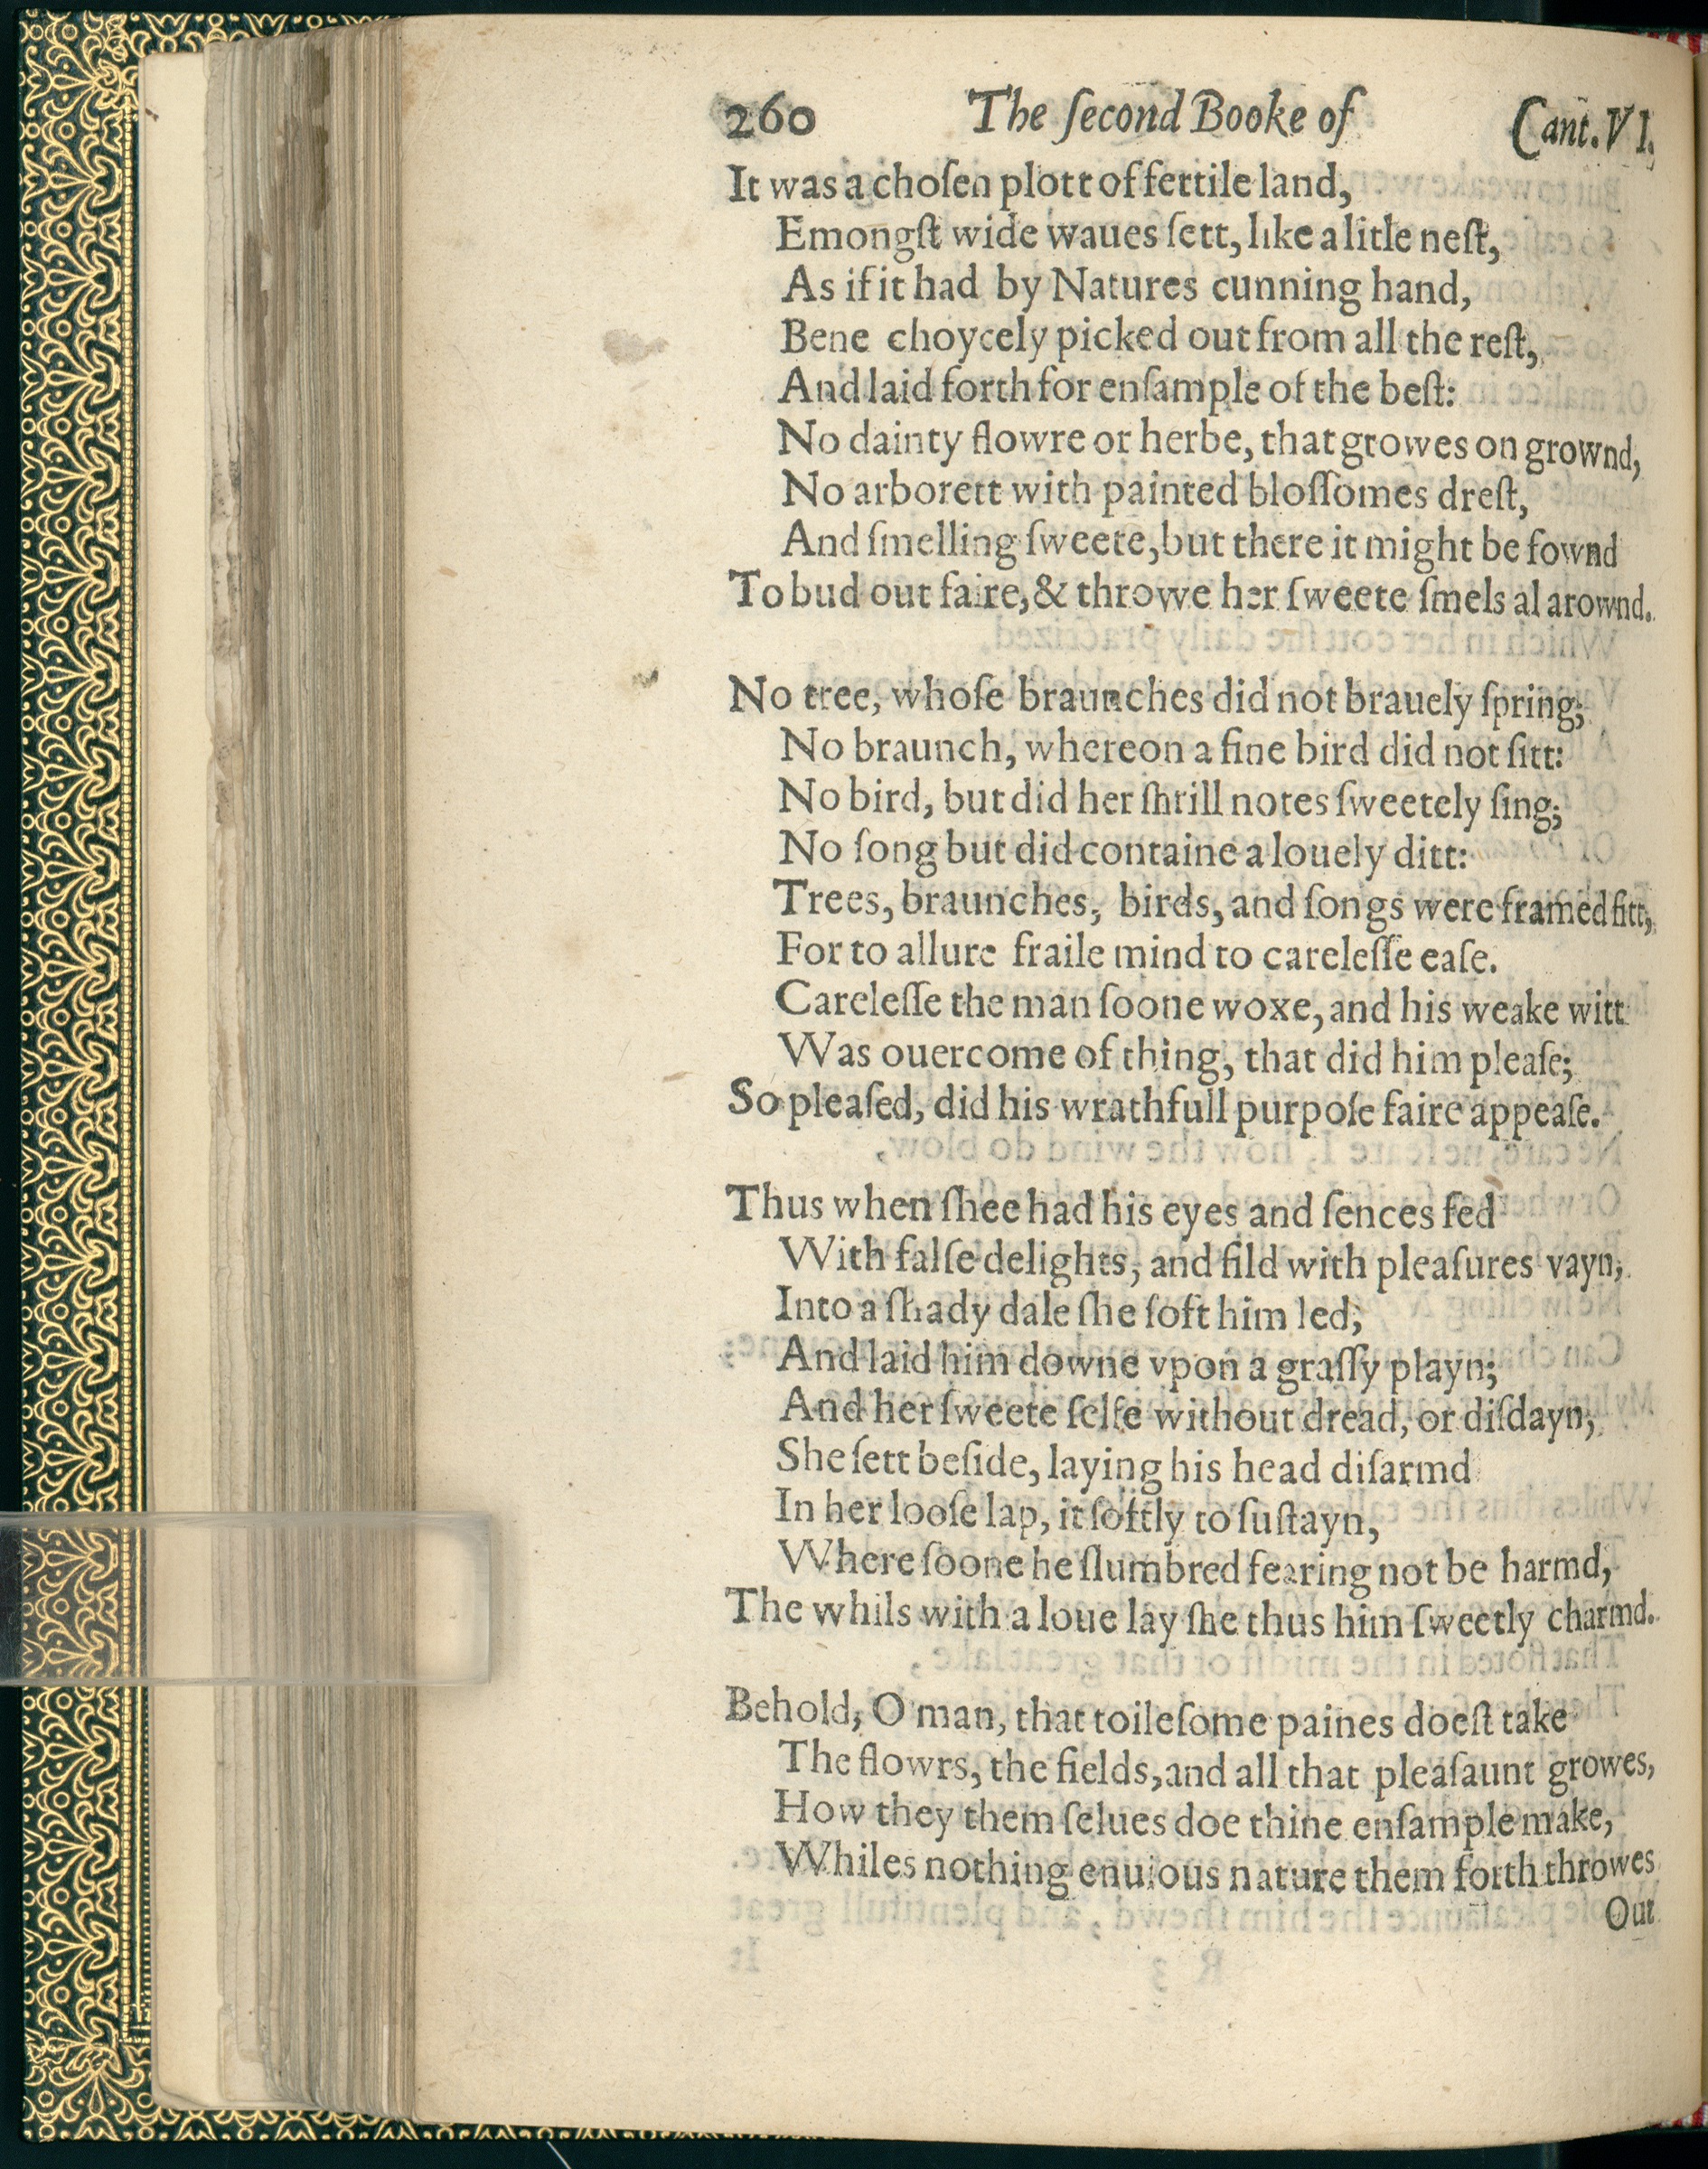 260 The ſecond Booke of Cant. VI.
It was a choſen plott of fertile land,
Emongſt wide waues ſett, like a litle neſt,
As if it had by Natures cunning hand,
Bene choycely picked out from all the reſt,
And laid forth for enſample of the beſt:
No dainty flowre or herbe, that growes on grownd,
No arborett with painted bloſſomes dreſt,
And ſmelling ſweete, but there it might be fownd
To bud out faire, & throwe her ſweete ſmels al arownd.
No tree, whoſe braunches did not brauely ſpring;
No braunch, whereon a fine bird did not ſitt:
No bird, but did her ſhrill notes ſweetely ſing;
No ſong but did containe a louely ditt:
Trees, braunches, birds, and ſongs were framed fitt,
For to allure fraile mind to careleſſe eaſe.
Careleſſe the man ſoone woxe, and his weake witt
Was ouercome of thing, that did him pleaſe;
So pleaſed, did his wrathfull purpoſe faire appeaſe.
Thus when ſhee had his eyes and ſences fed
With falſe delights, and fild with pleaſures vayn,
Into a ſhady dale ſhe ſoft him led;
And laid him downe vpon a graſſy playn;
And her ſweete ſelfe without dread, or diſdayn,
She ſett beſide, laying his head diſarmd
In her looſe lap, it ſoftly to ſuſtayn,
Where ſoone he ſlumbred fearing not be harmd,
The whils with a loue lay ſhe thus him ſweetly charmd.
Behold, O man, that toileſome paines doeſt take
The flowrs, the fields, and all that pleaſaunt growes,
How they them ſelues doe thine enſample make,
Whiles nothing enuious nature them forth throwes
Out